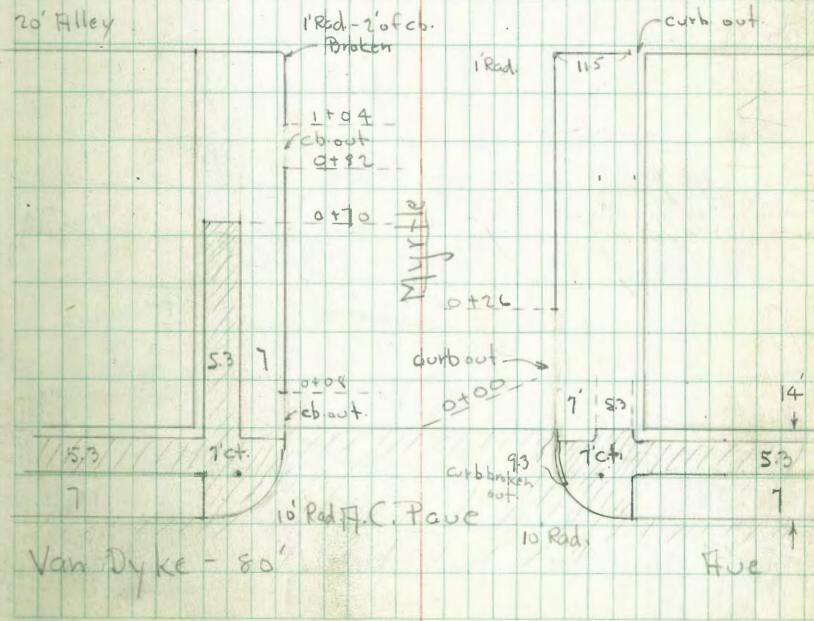 20' Alley
1' Rad - 2' of cb.
Broken
curb out.
1' Rad.
11.5
1+04
cb. out
0+92
0+70
Myrtle
0+26
5.3
7
curb out
0+08
0+00
cb. out.
7'
5.3
14'
5.3
7'ct.
9.3
7'ct.
5.3
curb broken
out.
7
7
10' Rad.
A.C. Pave
10' Rad.
Van Dyke - 80'
Ave